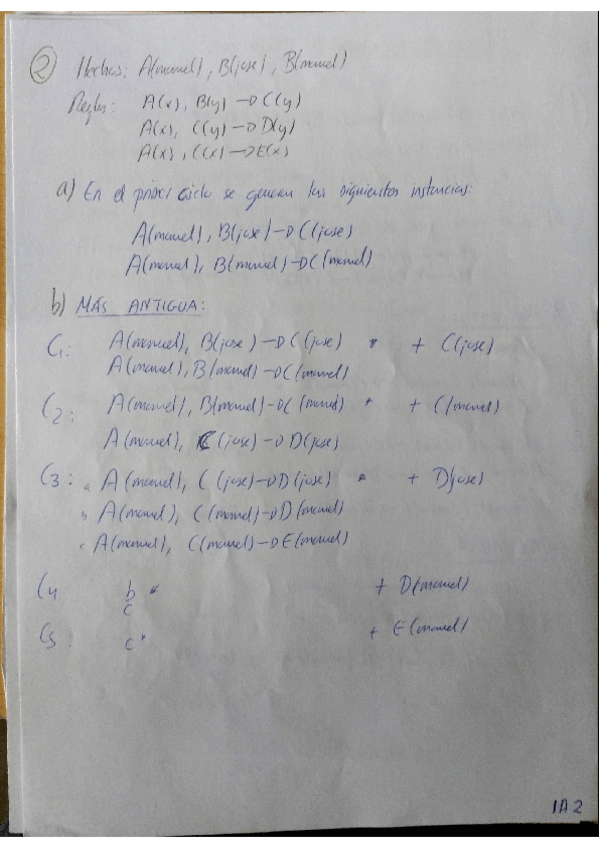 ② Hechos: A(manuel), B(jose), B(manuel)
Reglas: A(x), B(y) → C(y)
A(x), C(y) → D(y)
A(x), C(x) → E(x)
a) En el primer ciclo se generan las siguientes instancias:
A(manuel), B(jose) → C(jose)
A(manuel), B(manuel) → C(manuel)
b) MÁS ANTIGUA:
C1: A(manuel), B(jose) → C(jose) * + C(jose)
A(manuel), B(manuel) → C(manuel)
C2: A(manuel), B(manuel) → C(manuel) * + C(manuel)
A(manuel), C(jose) → D(jose)
C3: a A(manuel), C(jose) → D(jose) * + D(jose)
b A(manuel), C(manuel) → D(manuel)
c A(manuel), C(manuel) → E(manuel)
C4 b * + D(manuel)
c
C5: c * + E(manuel)
IA 2